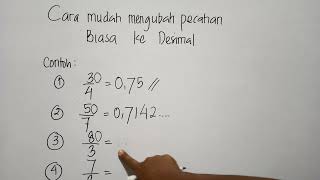 Cara mudah mengubah pecahan
Biasa ke Desimal
Contoh:
① 30/4 = 0,75 //
② 50/7 = 0,7142....
③ 80/3 =
④ 7/